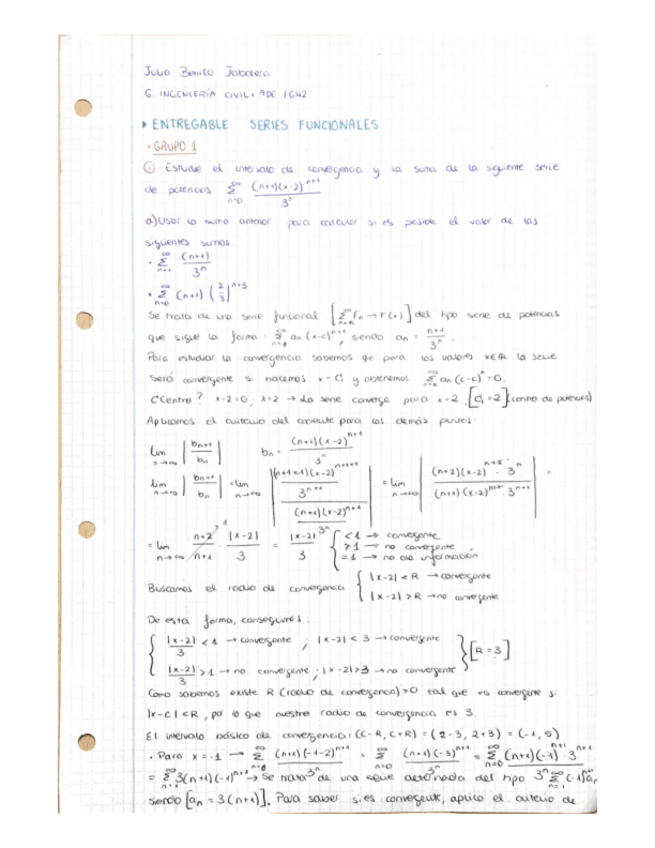 Julio Benito
G. INGENIERÍA CIVIL + ADE / GM2
▸ ENTREGABLE SERIES FUNCIONALES
· GRUPO 1
① Estudie el intervalo de convergencia y la suma de la siguiente serie
de potencias ∑_{n=0}^{∞} (n+1)(x-2)^{n+1} / 3^n
a) Usar la suma anterior para calcular si es posible el valor de las
siguientes sumas
· ∑_{n=1}^{∞} (n+1) / 3^n
· ∑_{n=0}^{∞} (n+1) (2/3)^{n+3}
Se trata de una serie funcional [∑ fn → F(x)] del tipo serie de potencias
que sigue la forma: ∑ an (x-c)^{n+1}, siendo an = (n+1) / 3^n.
Para estudiar la convergencia sabemos que para los valores x∈ℝ la serie
será convergente si hacemos x = c y obtenemos ∑ an (c-c)^n = 0.
¿Centro? x-2=0; x=2 → La serie converge para x=2. [c = 2] (centro de potencias)
Aplicamos el criterio del cociente para los demás puntos:
lim_{n→∞} |b_{n+1} / b_n| b_n = (n+1)(x-2)^{n+1} / 3^n
lim_{n→∞} |b_{n+1} / b_n| = lim_{n→∞} |((n+1+1)(x-2)^{n+1+1} / 3^{n+1}) / ((n+1)(x-2)^{n+1} / 3^n)| = lim_{n→∞} |(n+2)(x-2)^{n+2} · 3^n / (n+1)(x-2)^{n+1} · 3^{n+1}| =
= lim_{n→∞} (n+2)/(n+1) · |x-2|/3 = |x-2|/3 { <1 → convergente
>1 → no convergente
=1 → no da información
Buscamos el radio de convergencia { |x-2| < R → convergente
|x-2| > R → no convergente
De esta forma, conseguimos:
{ |x-2|/3 < 1 → convergente ; |x-2| < 3 → convergente } [R = 3]
|x-2|/3 > 1 → no convergente ; |x-2| > 3 → no convergente
Como sabemos existe R (radio de convergencia) > 0 tal que es convergente si
|x-c| < R, por lo que nuestro radio de convergencia es 3.
El intervalo básico de convergencia: (C-R, C+R) = (2-3, 2+3) = (-1, 5)
· Para x = -1 → ∑ (n+1)(-1-2)^{n+1} / 3^n = ∑_{n=0}^{∞} (n+1)(-3)^{n+1} / 3^n = ∑_{n=0}^{∞} (n+1)(-1)^{n+1} · 3^{n+1} / 3^n
= ∑ 3(n+1)(-1)^{n+1} → Se trata de una serie alternada del tipo ∑ (-1)^n a_n
siendo [an = 3(n+1)]. Para saber si es convergente, aplico el criterio de